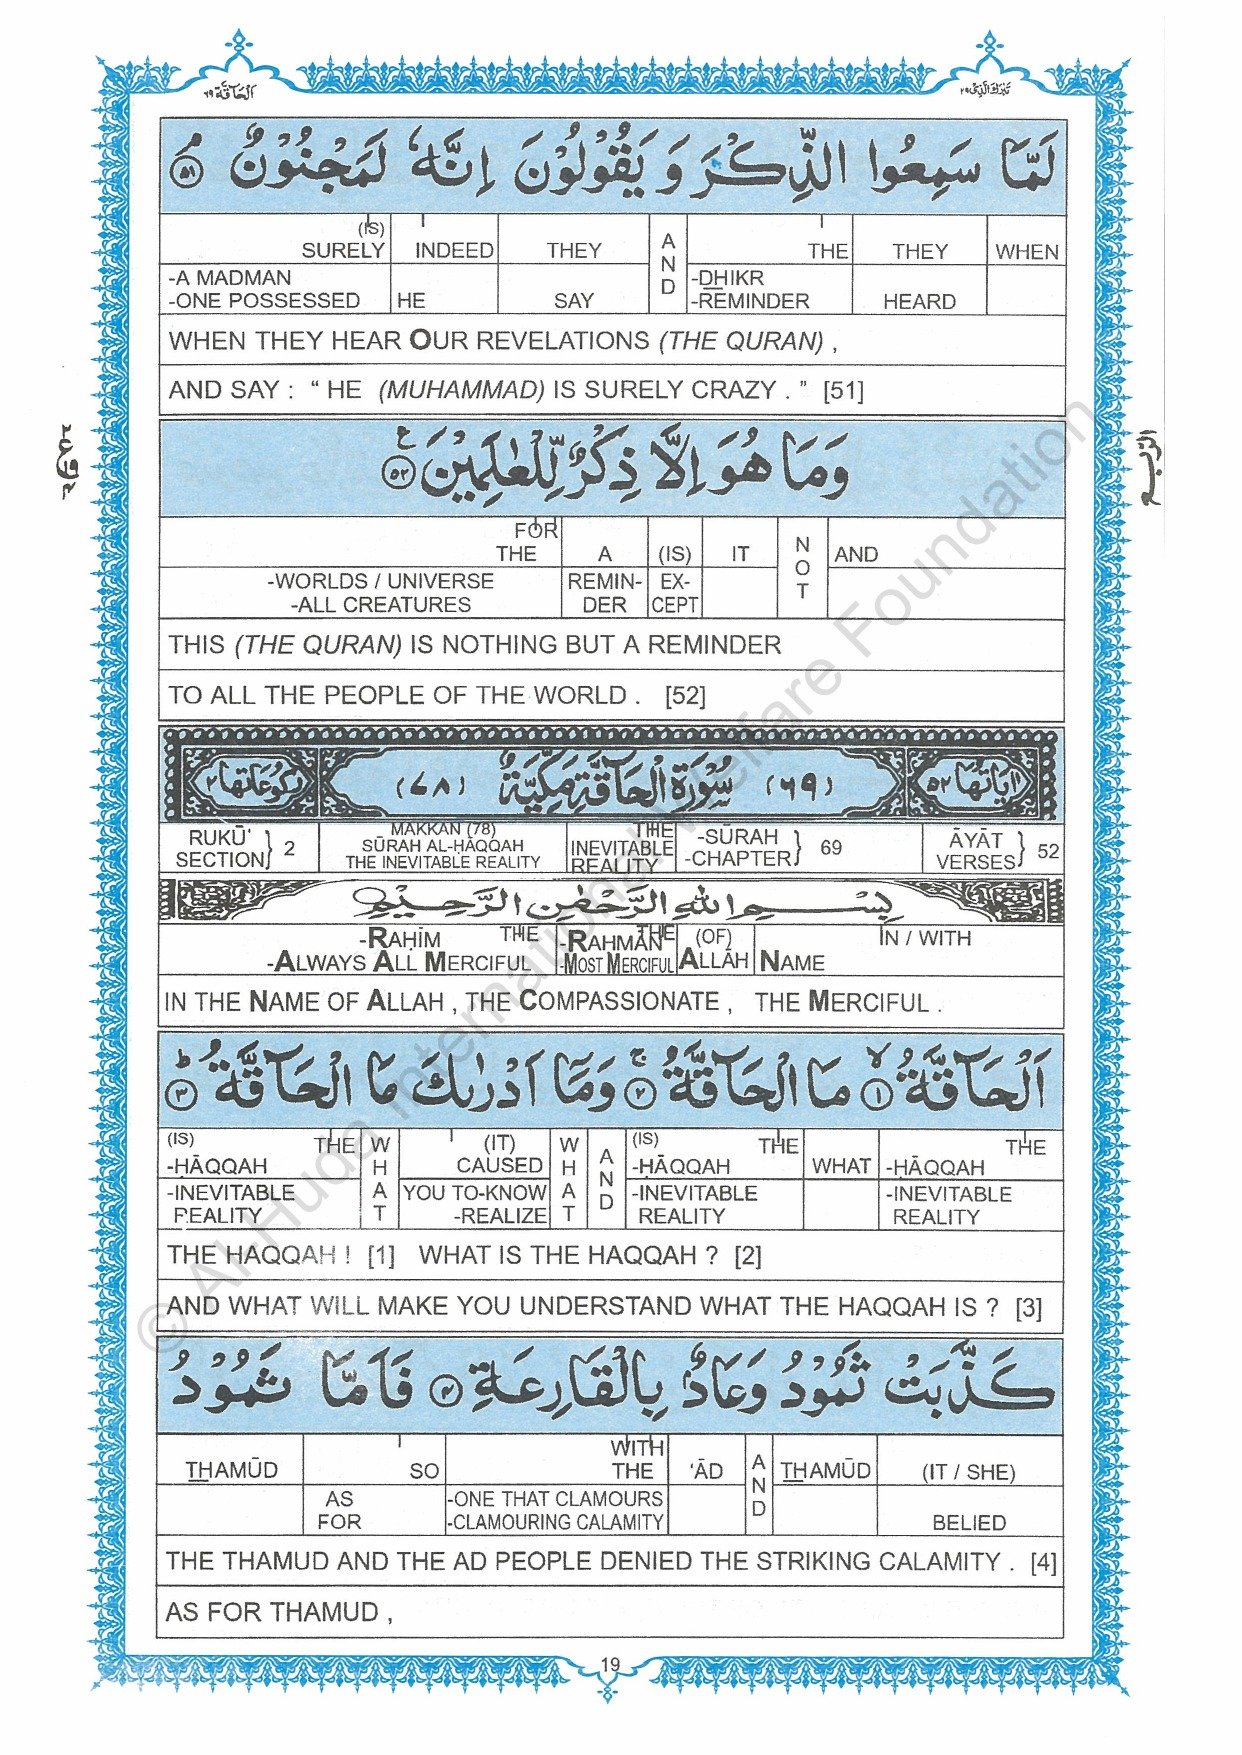 اَلْحَآقَّة ٦٩
تَبٰرَكَ الَّذِیْ ٢٩
لَمَّا سَمِعُوا الذِّكْرَ وَ يَقُوْلُوْنَ اِنَّهٗ لَمَجْنُوْنٌ ۘ ﴿٥١﴾
(IS) SURELY INDEED THEY AND THE THEY WHEN
-A MADMAN HE SAY -DHIKR HEARD
-ONE POSSESSED -REMINDER
WHEN THEY HEAR OUR REVELATIONS (THE QURAN) ,
AND SAY : “ HE (MUHAMMAD) IS SURELY CRAZY . ” [51]
وَمَا هُوَ اِلَّا ذِكْرٌ لِّلْعٰلَمِيْنَ ﴿٥٢﴾ ع
FOR THE A (IS) IT NOT AND
-WORLDS / UNIVERSE REMIN- EX-
-ALL CREATURES DER CEPT
THIS (THE QURAN) IS NOTHING BUT A REMINDER
TO ALL THE PEOPLE OF THE WORLD . [52]
اٰيَاتُهَا ٥٢ (٦٩) سُوْرَةُ الْحَآقَّةِ مَكِّيَّةٌ (٧٨) رُكُوْعَاتُهَا ٢
RUKŪ' MAKKAN (78) THE -SŪRAH ĀYĀT
SECTION} 2 SŪRAH AL-ḤĀQQAH INEVITABLE -CHAPTER} 69 VERSES} 52
THE INEVITABLE REALITY REALITY
بِسْمِ اللهِ الرَّحْمٰنِ الرَّحِيْمِ
-RAḤĪM THE -RAḤMĀN THE (OF) IN / WITH
-ALWAYS ALL MERCIFUL -MOST MERCIFUL ALLĀH NAME
IN THE NAME OF ALLAH , THE COMPASSIONATE , THE MERCIFUL .
اَلْحَآقَّةُ ۙ ﴿١﴾ مَا الْحَآقَّةُ ۚ ﴿٢﴾ وَمَآ اَدْرٰىكَ مَا الْحَآقَّةُ ؕ ﴿٣﴾
(IS) THE WHAT (IT) WHAT AND (IS) THE THE
-ḤĀQQAH CAUSED -ḤĀQQAH WHAT -ḤĀQQAH
-INEVITABLE YOU TO-KNOW -INEVITABLE -INEVITABLE
REALITY -REALIZE REALITY REALITY
THE HAQQAH ! [1] WHAT IS THE HAQQAH ? [2]
AND WHAT WILL MAKE YOU UNDERSTAND WHAT THE HAQQAH IS ? [3]
كَذَّبَتْ ثَمُوْدُ وَعَادٌۢ بِالْقَارِعَةِ ﴿٤﴾ فَاَمَّا ثَمُوْدُ
THAMŪD SO WITH THE 'ĀD AND THAMŪD (IT / SHE)
AS -ONE THAT CLAMOURS
FOR -CLAMOURING CALAMITY BELIED
THE THAMUD AND THE AD PEOPLE DENIED THE STRIKING CALAMITY . [4]
AS FOR THAMUD ,
19
© Al-Huda International Welfare Foundation